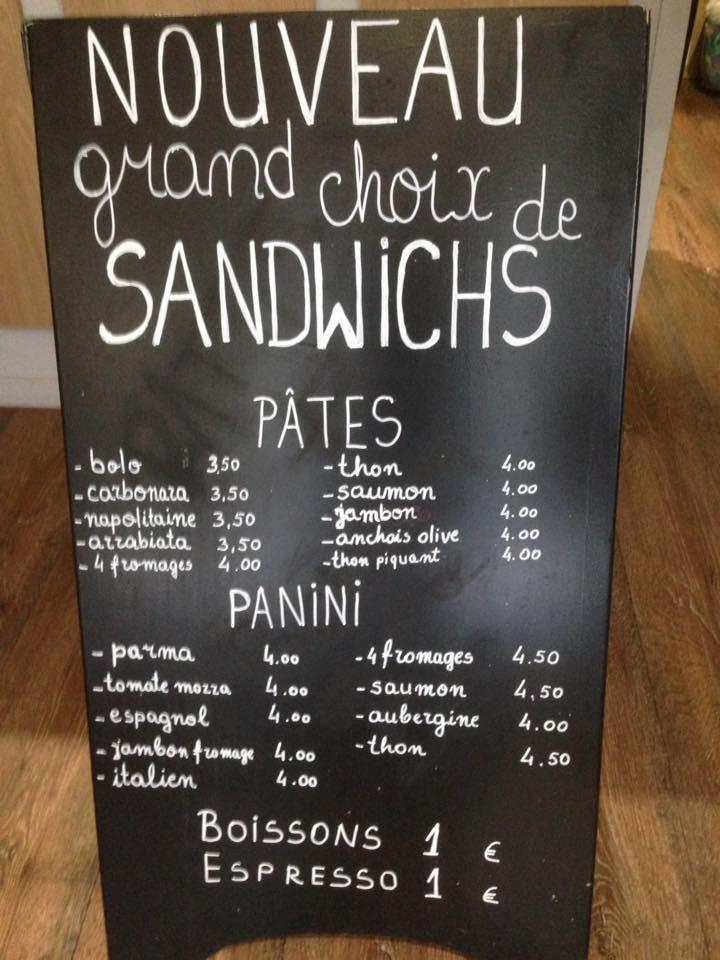 NOUVEAU
grand choix de
SANDWiCHS
PÂTES
- bolo 3,50 - thon 4.00
- carbonara 3,50 - saumon 4.00
- napolitaine 3,50 - jambon 4.00
- arrabiata 3,50 - anchois olive 4.00
- 4 fromages 4.00 - thon piquant 4.00
PANiNi
- parma 4.00 - 4 fromages 4.50
- tomate mozza 4.00 - saumon 4,50
- espagnol 4.00 - aubergine 4.00
- jambon fromage 4.00 - thon 4.50
- italien 4.00
BOiSSONS 1 €
ESPRESSO 1 €